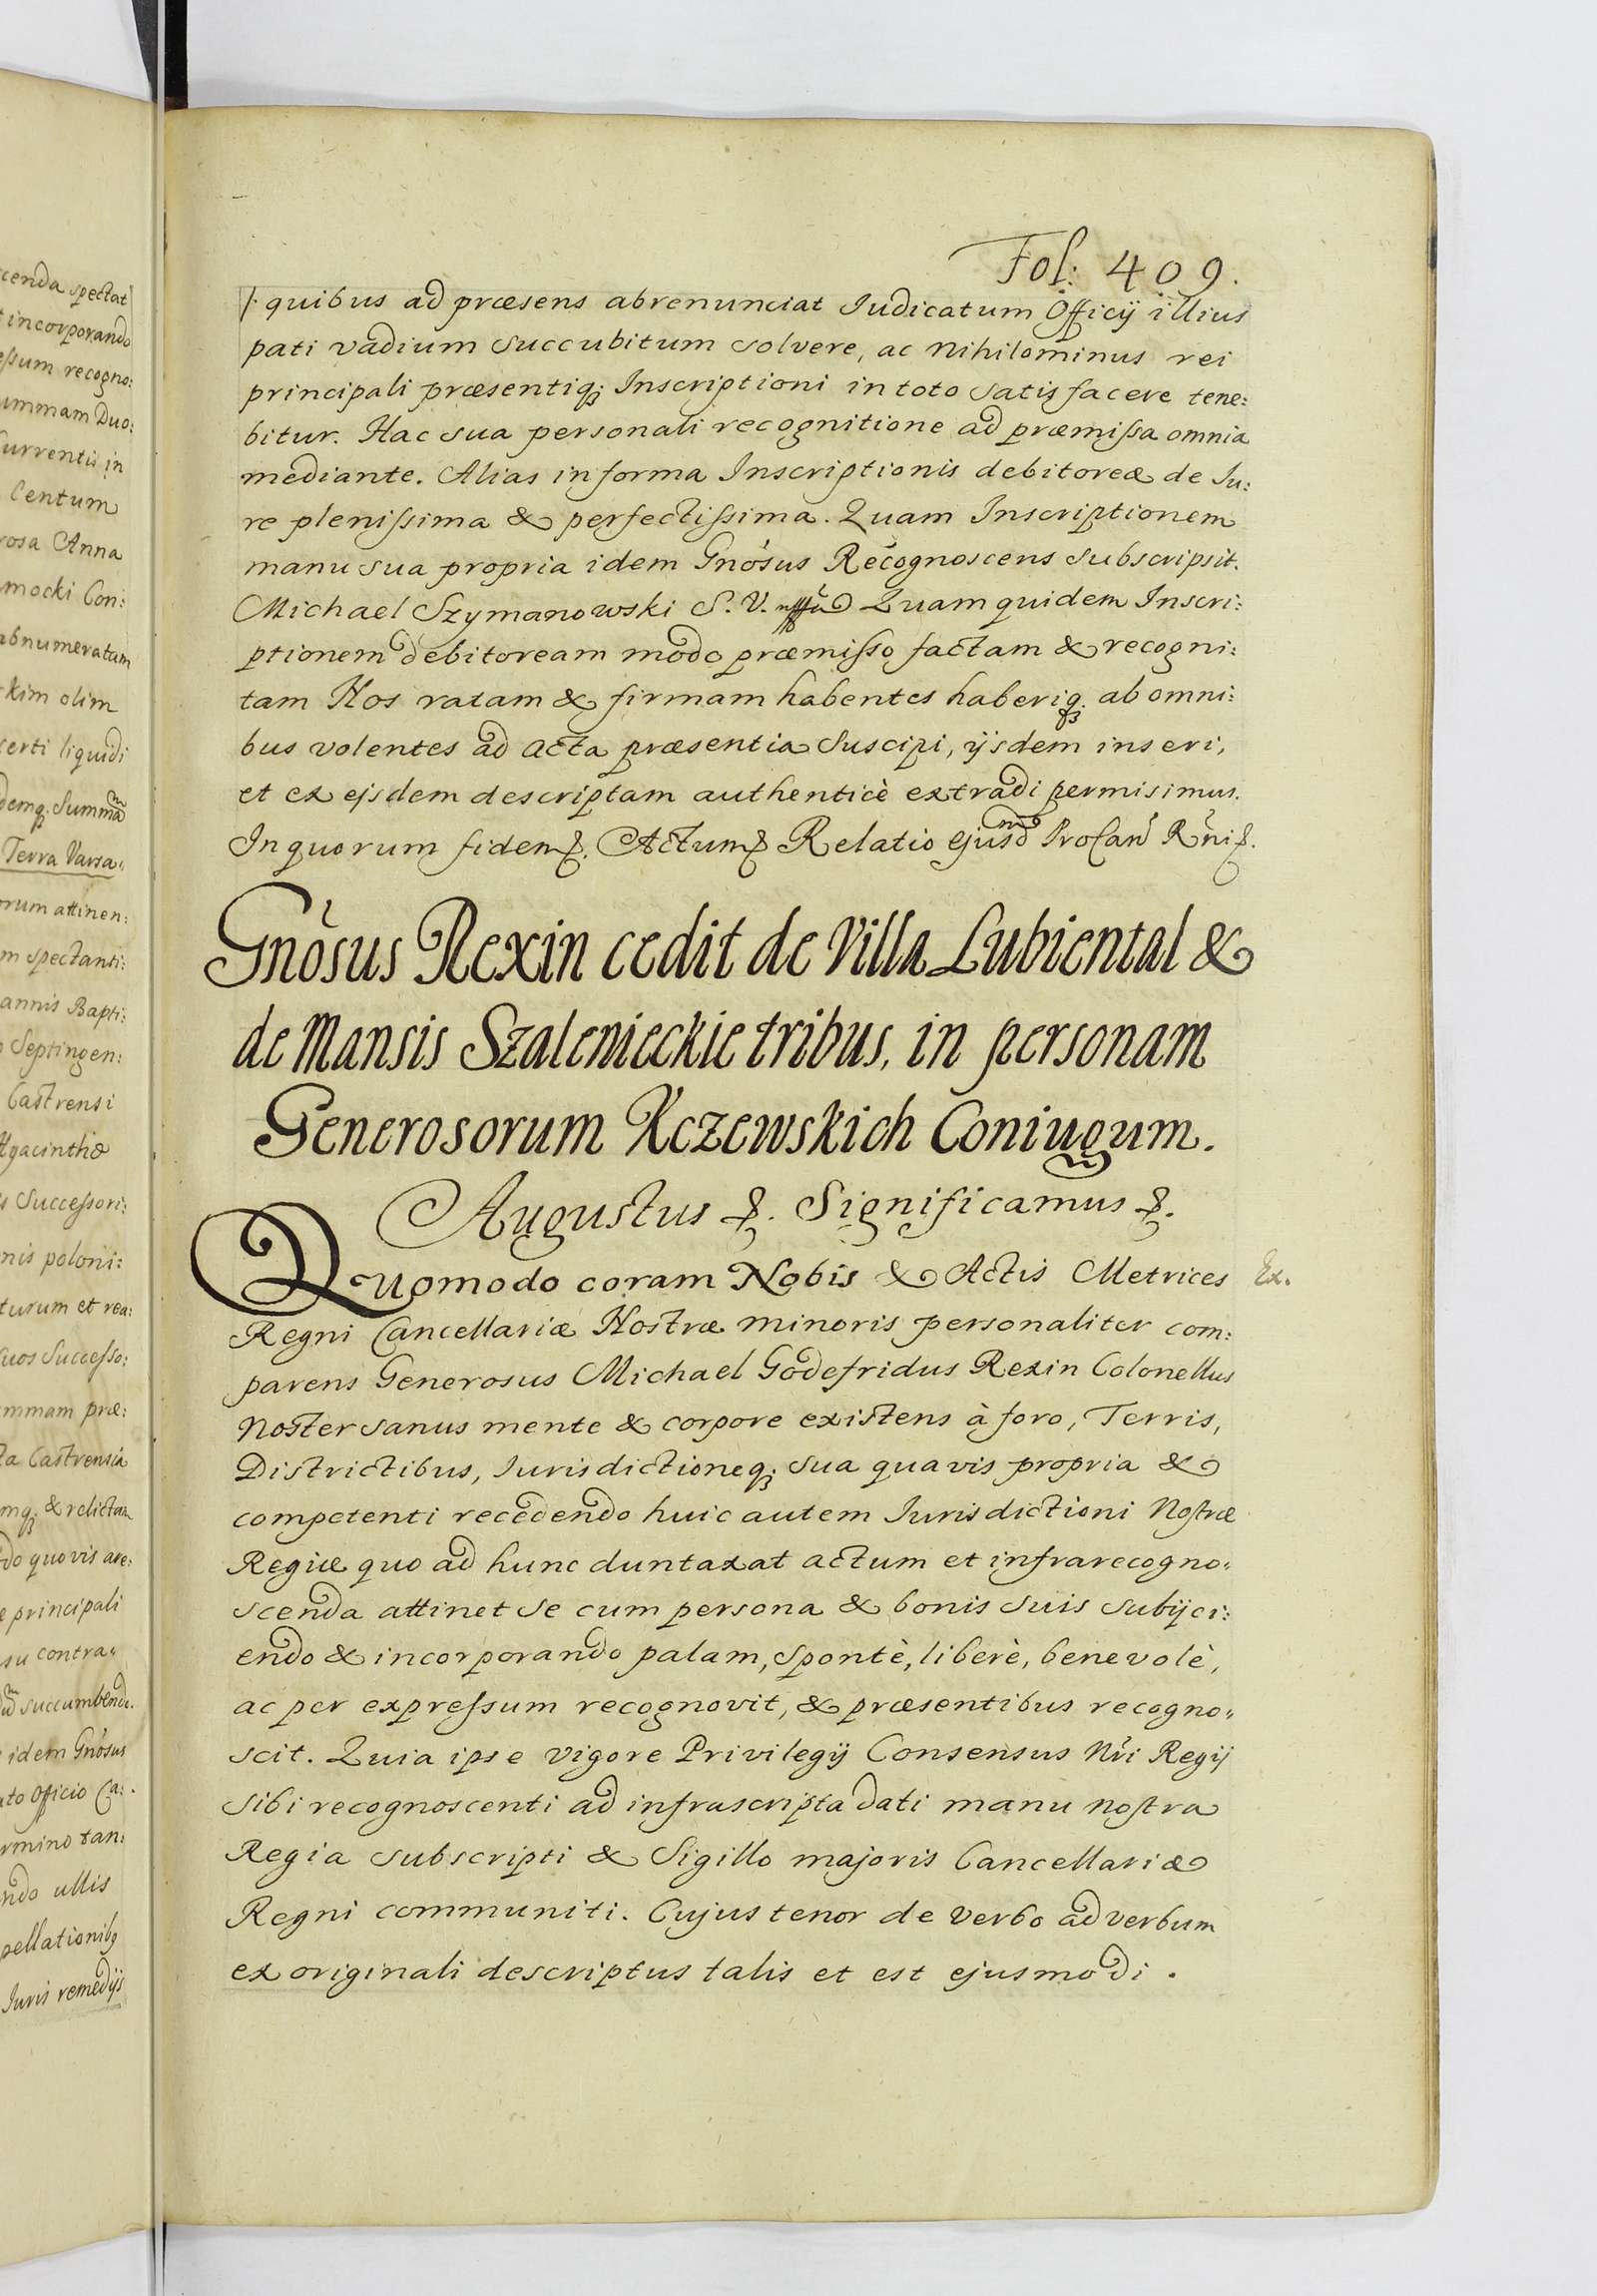 cenda spectat
incorporando
essum recogno:
ummam Duo:
Currentis in
Centum
rosa Anna
mocki Con:
abnumeratam
kim olim
certi liquidi
demq; Summam
Terra Varsa„
orum attinen:
m spectanti:
annis Bapti:
Septingen:
Castrensi
Hyacintho
s Successori:
nis poloni:
turum et rea:
suos Successo:
ummam præ:
ta Castrensia
mq; & relictam
do quovis are:
e principali
su contra„
succumbendo.
idem Gnosus
to Officio Ca:
rmino tan:
ndo ullis
pellationibq
Juris remedijs
Fol: 409.
/. quibus ad præsens abrenunciat Iudicatum Officij illius
pati vadium succubitum solvere, ac nihilominus rei
principali præsentiq; Inscriptioni in toto satisfacere tene:
bitur. Hac sua personali recognitione ad præmissa omnia
mediante. Alias in forma Inscriptionis debitoreæ de Ju:
re plenissima & perfectissima. Quam Inscriptionem
manu sua propria idem Gnosus Recognoscens subscripsit.
Michael Szymanowski S. V. Quam quidem Inscri:
ptionem debitoream modo præmisso factam & recogni:
tam Nos ratam & firmam habentes haberiq; ab omni:
bus volentes ad acta præsentia suscipi, ijsdem inseri,
et ex ejsdem descriptam authenticè extradi permisimus.
In quorum fidem &. Actum & Relatio ejusdm ProCan Rni &.
Gnosus Rexin cedit de Villa Lubiental &
de Mansis Szalenieckie tribus, in personam
Generosorum Kczewskich Coniugum.
Augustus &. Significamus &.
Quomodo coram Nobis & Actis Metrices Ex.
Regni Cancellariæ Nostræ minoris personaliter com:
parens Generosus Michael Godefridus Rexin Colonellus
Noster sanus mente & corpore existens à foro, Terris,
Districtibus, Iurisdictioneq; sua quavis propria &
competenti recedendo huic autem Iurisdictioni Nostræ
Regiæ quo ad hunc duntaxat actum et infrarecogno„
scenda attinet se cum persona & bonis suis subijci:
endo & incorporando palam, spontè, liberè, benevolè,
ac per expressum recognovit, & præsentibus recogno„
scit. Quia ipse vigore Privilegij Consensus Nri Regij
sibi recognoscenti ad infrascripta dati manu nostra
Regia subscripti & Sigillo majoris Cancellariæ
Regni communiti. Cujus tenor de verbo ad verbum
ex originali descriptus talis et est ejusmodi.